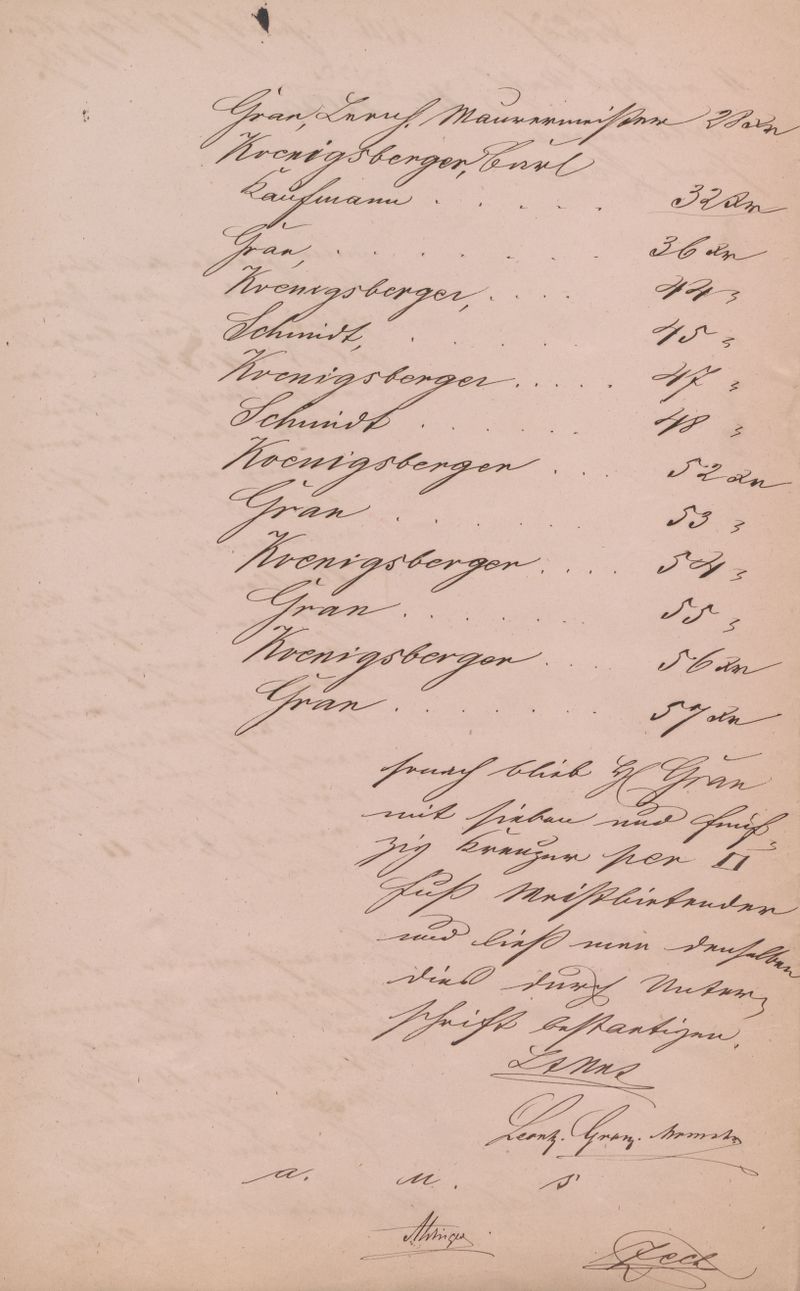 Gran, Leonh. Maurermeister 28 Kr
Koenigsberger, Carl
Kaufmann . . . . . 32 Kr
Gran, . . . . . . . 36 Kr
Koenigsberger, . . . . 44 "
Schmidt, . . . . . 45 "
Koenigsberger . . . . . 47 "
Schmidt . . . . . . 48 "
Koenigsberger . . . 52 Kr
Gran . . . . . . 53 "
Koenigsberger . . . . 54 "
Gran . . . . . . 55 "
Koenigsberger . . . . 56 Kr
Gran . . . . . . 57 Kr
sonach blieb H Gran
mit sieben und fünf-
zig Kreuzer per □
Fuß Meistbietender
und ließ man denselben
dies durch Unter-
schrift bestaetigen.
Leonh. Gran.
a. u. s
Zech